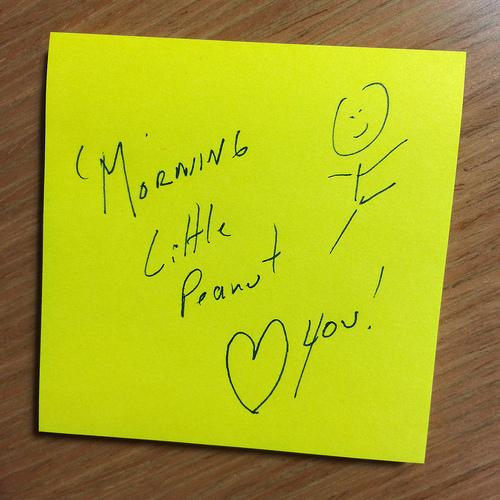 'Morning
Little
Peanut
♡ you!